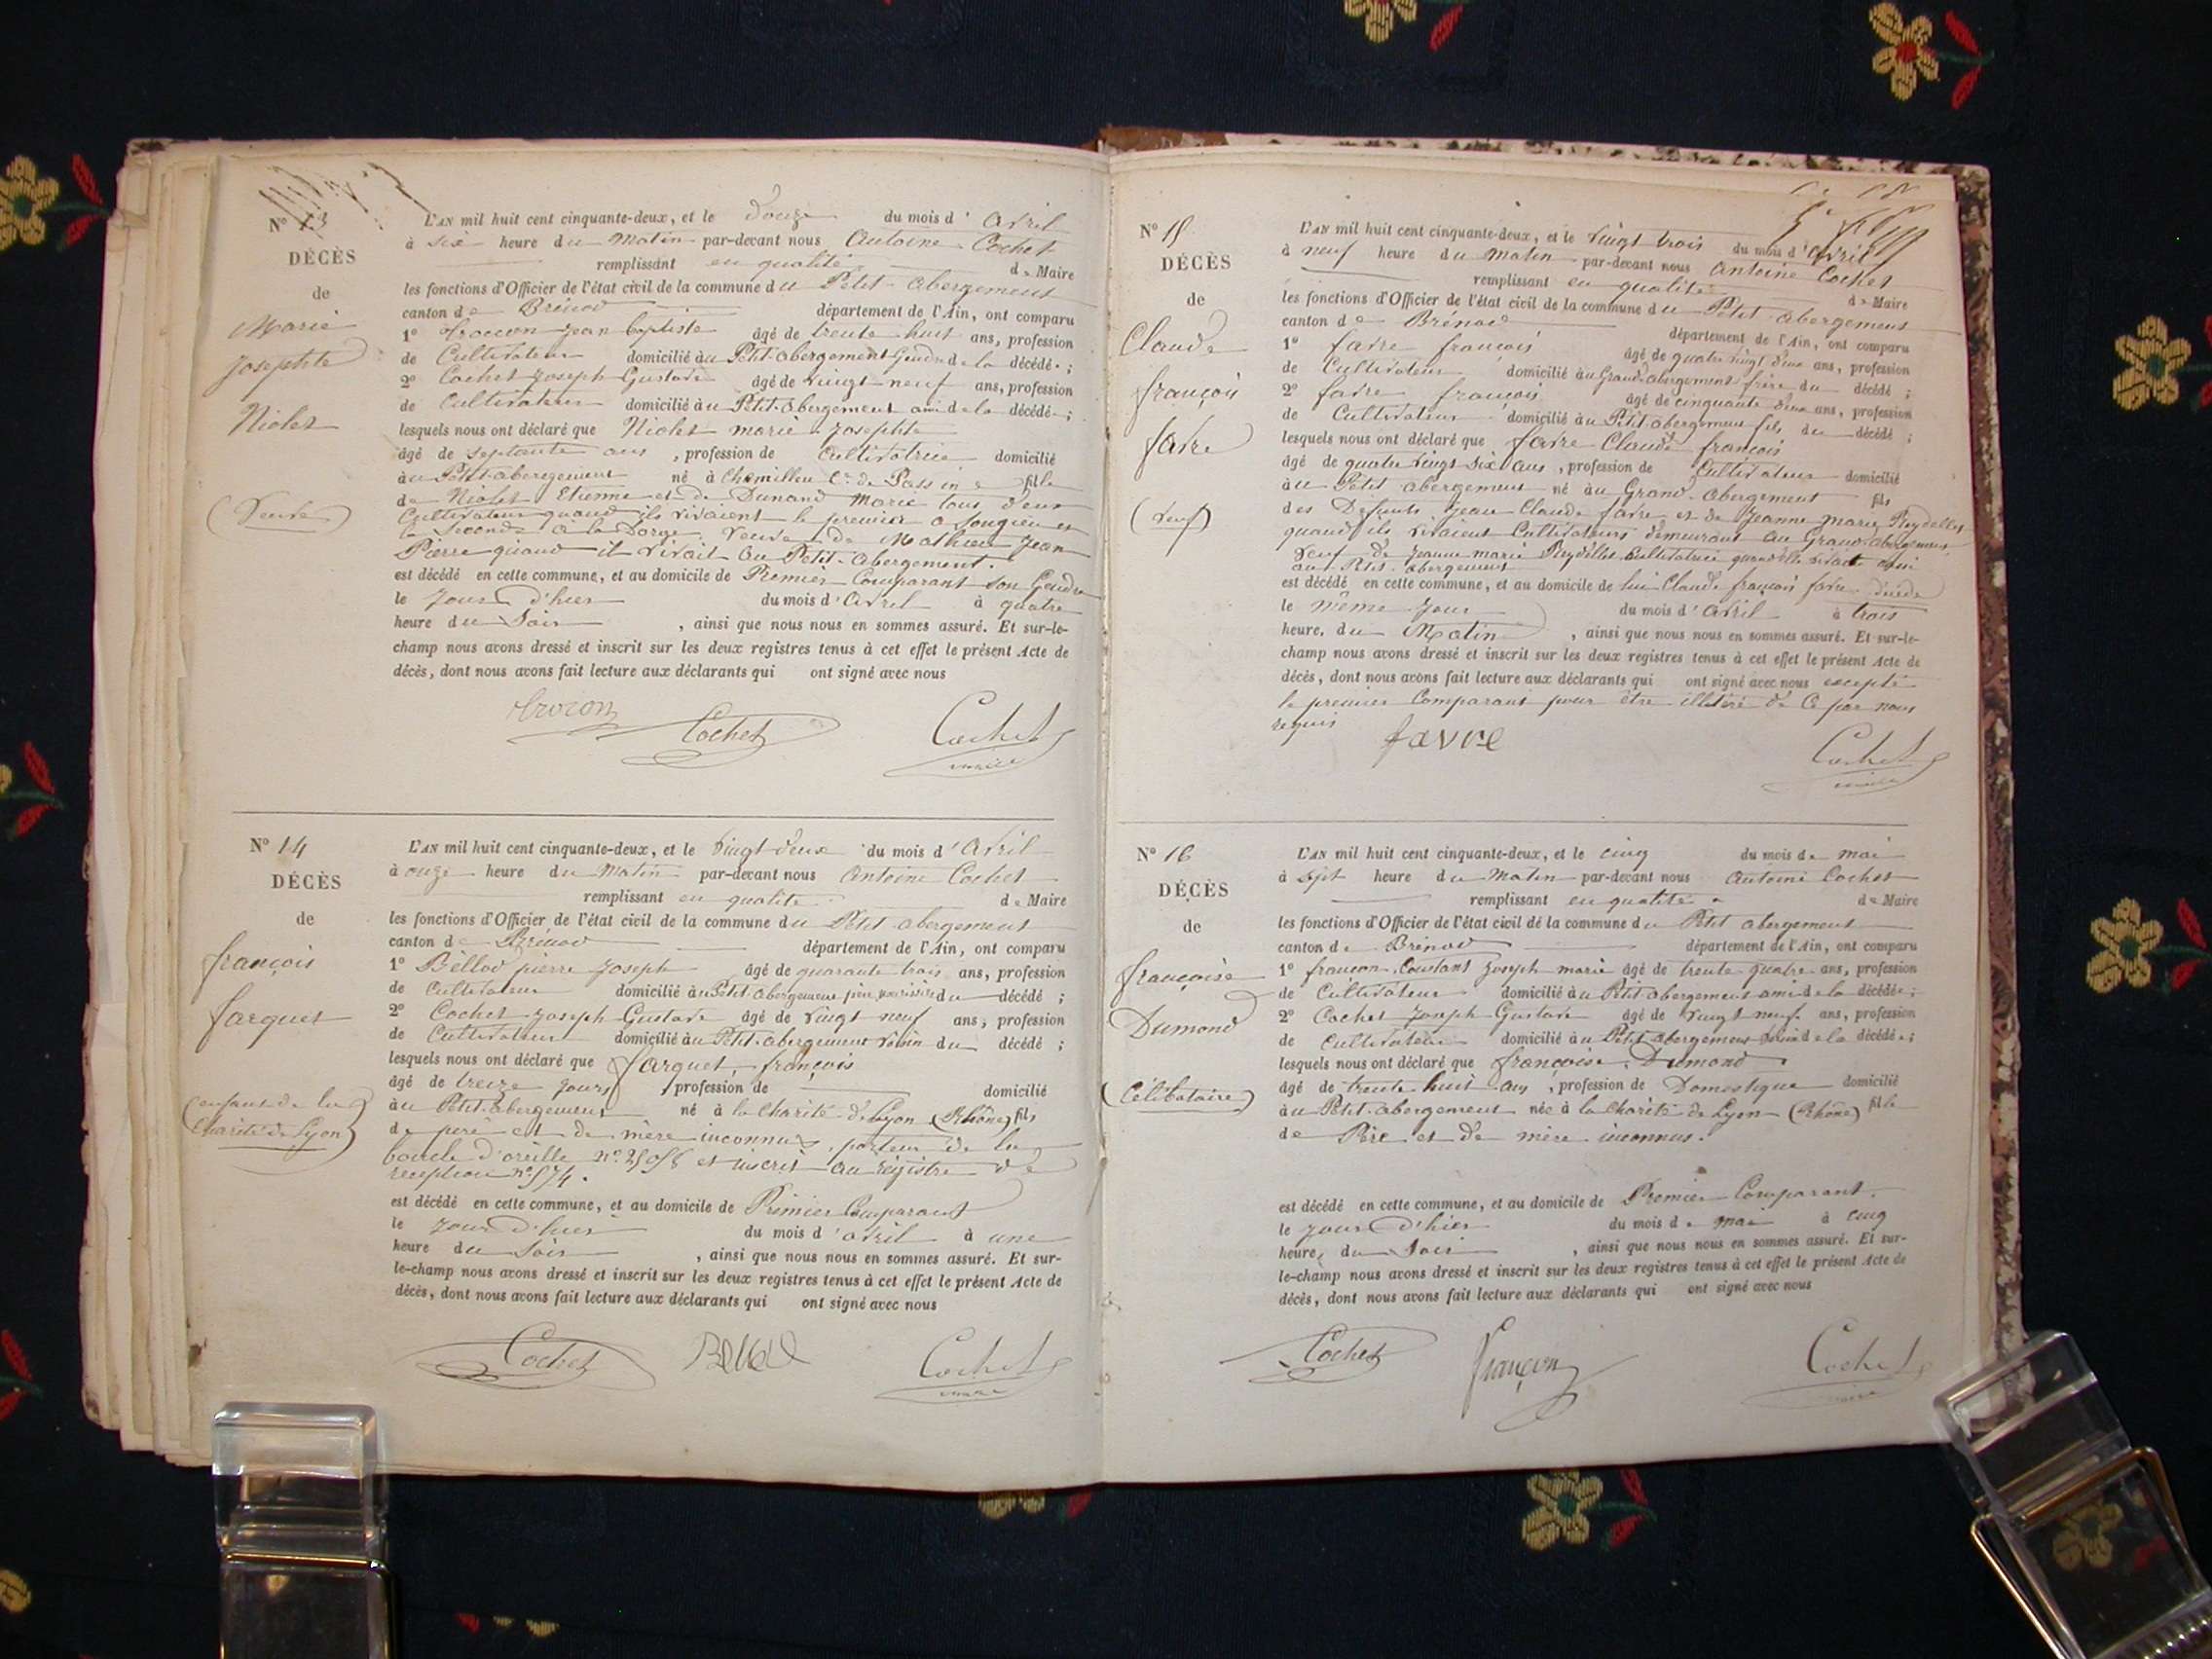 N° 13
DÉCÈS
de
Marie
Josephte
Niolet
(Veuve)
L'AN mil huit cent cinquante-deux, et le douze du mois d'avril
à six heure du Matin par-devant nous Antoine Cochet
remplissant en qualité de Maire
les fonctions d'Officier de l'état civil de la commune du Petit-abergement
canton de Brénod département de l'Ain, ont comparu
1° jean baptiste âgé de trente huit ans, profession
de Cultivateur domicilié au Petit-abergement Gendre de la décédée;
2° Cochet Joseph Gustave âgé de vingt-neuf ans, profession
de Cultivateur domicilié au Petit-abergement ami de la décédée;
lesquels nous ont déclaré que Niolet marie Josephte
âgé de septante ans, profession de Cultivatrice domicilié
au Petit-abergement né à Chemillieu Cne de Passin fille
de Niolet Etienne et de Dunand Marie tous deux
Cultivateurs quand ils vivaient le premier a Songieu et
la Seconde à la Dorge Veuve de Mathieu Jean
Pierre quand il vivait Au Petit-abergement.
est décédé en cette commune, et au domicile de Premier Comparant son Gendre
le Jour d'hier du mois d'avril à quatre
heure du Soir, ainsi que nous nous en sommes assuré. Et sur-le-
champ nous avons dressé et inscrit sur les deux registres tenus à cet effet le présent Acte de
décès, dont nous avons fait lecture aux déclarants qui ont signé avec nous
Cochet Cochet
maire
N° 14
DÉCÈS
de
françois
farquet
(enfant de la
Charité de Lyon)
L'AN mil huit cent cinquante-deux, et le vingt-deux du mois d'avril
à onze heure du Matin par-devant nous Antoine Cochet
remplissant en qualité de Maire
les fonctions d'Officier de l'état civil de la commune du Petit abergement
canton de Brénod département de l'Ain, ont comparu
1° Bellod pierre Joseph âgé de quarante trois ans, profession
de Cultivateur domicilié au Petit-abergement père nourissier du décédé;
2° Cochet Joseph Gustave âgé de vingt neuf ans, profession
de Cultivateur domicilié au Petit-abergement voisin du décédé;
lesquels nous ont déclaré que farquet, françois
âgé de treize jours profession de domicilié
au Petit-abergement né à la Charité de Lyon (Rhône) fils
de père et de mère inconnus, porteur de la
boucle d'oreille n° et inscrit au registre de
reception n° 574.
est décédé en cette commune, et au domicile de Premier Comparant
le Jour d'hier du mois d'avril à une
heure du Soir, ainsi que nous nous en sommes assuré. Et sur-
le-champ nous avons dressé et inscrit sur les deux registres tenus à cet effet le présent Acte de
décès, dont nous avons fait lecture aux déclarants qui ont signé avec nous
Cochet Bellod Cochet
maire
N° 15
DÉCÈS
de
Claude
françois
favre
(veuf)
L'AN mil huit cent cinquante-deux, et le vingt trois du mois d'avril
à neuf heure du matin par-devant nous Antoine Cochet
remplissant en qualité de Maire
les fonctions d'Officier de l'état civil de la commune du Petit-abergement
canton de Brénod département de l'Ain, ont comparu
1° favre françois âgé de quatre vingt deux ans, profession
de Cultivateur domicilié au Grand-abergement frère du décédé;
2° favre françois âgé de cinquante deux ans, profession
de Cultivateur domicilié au Petit-abergement fils du décédé;
lesquels nous ont déclaré que favre Claude françois
âgé de quatre vingts six ans, profession de Cultivateur domicilié
au Petit abergement né au Grand-abergement fils
des Defunts Jean Claude favre et de Jeanne marie Reydellet
quand ils vivaient Cultivateurs demeurant au Grand-abergement
veuf de Jeanne marie Reydellet Cultivatrice quand elle vivait aussi
au Petit-abergement
est décédé en cette commune, et au domicile de lui Claude françois favre
le même Jour du mois d'avril à trois
heure du Matin, ainsi que nous nous en sommes assuré. Et sur-le-
champ nous avons dressé et inscrit sur les deux registres tenus à cet effet le présent Acte de
décès, dont nous avons fait lecture aux déclarants qui ont signé avec nous excepté
le premier Comparant pour être illitéré de Ce par nous
requis
favre Cochet
maire
N° 16
DÉCÈS
de
françoise
Dumond
(Célibataire)
L'AN mil huit cent cinquante-deux, et le cinq du mois de mai
à sept heure du Matin par-devant nous Antoine Cochet
remplissant en qualité de Maire
les fonctions d'Officier de l'état civil de la commune du Petit abergement
canton de Brénod département de l'Ain, ont comparu
1° françon Constant Joseph marie âgé de trente quatre ans, profession
de Cultivateur domicilié au Petit-abergement ami de la décédée;
2° Cochet Joseph Gustave âgé de vingt neuf ans, profession
de Cultivateur domicilié au Petit abergement voisin de la décédée;
lesquels nous ont déclaré que françoise Dumond
âgé de trente huit ans, profession de Domestique domicilié
au Petit-abergement née à la Charité de Lyon (Rhône) fille
de Père et de mère inconnus.
est décédé en cette commune, et au domicile de Premier Comparant.
le Jour d'hier du mois de mai à cinq
heure, du Soir, ainsi que nous nous en sommes assuré. Et sur-
le-champ nous avons dressé et inscrit sur les deux registres tenus à cet effet le présent Acte de
décès, dont nous avons fait lecture aux déclarants qui ont signé avec nous
Cochet françon Cochet
maire